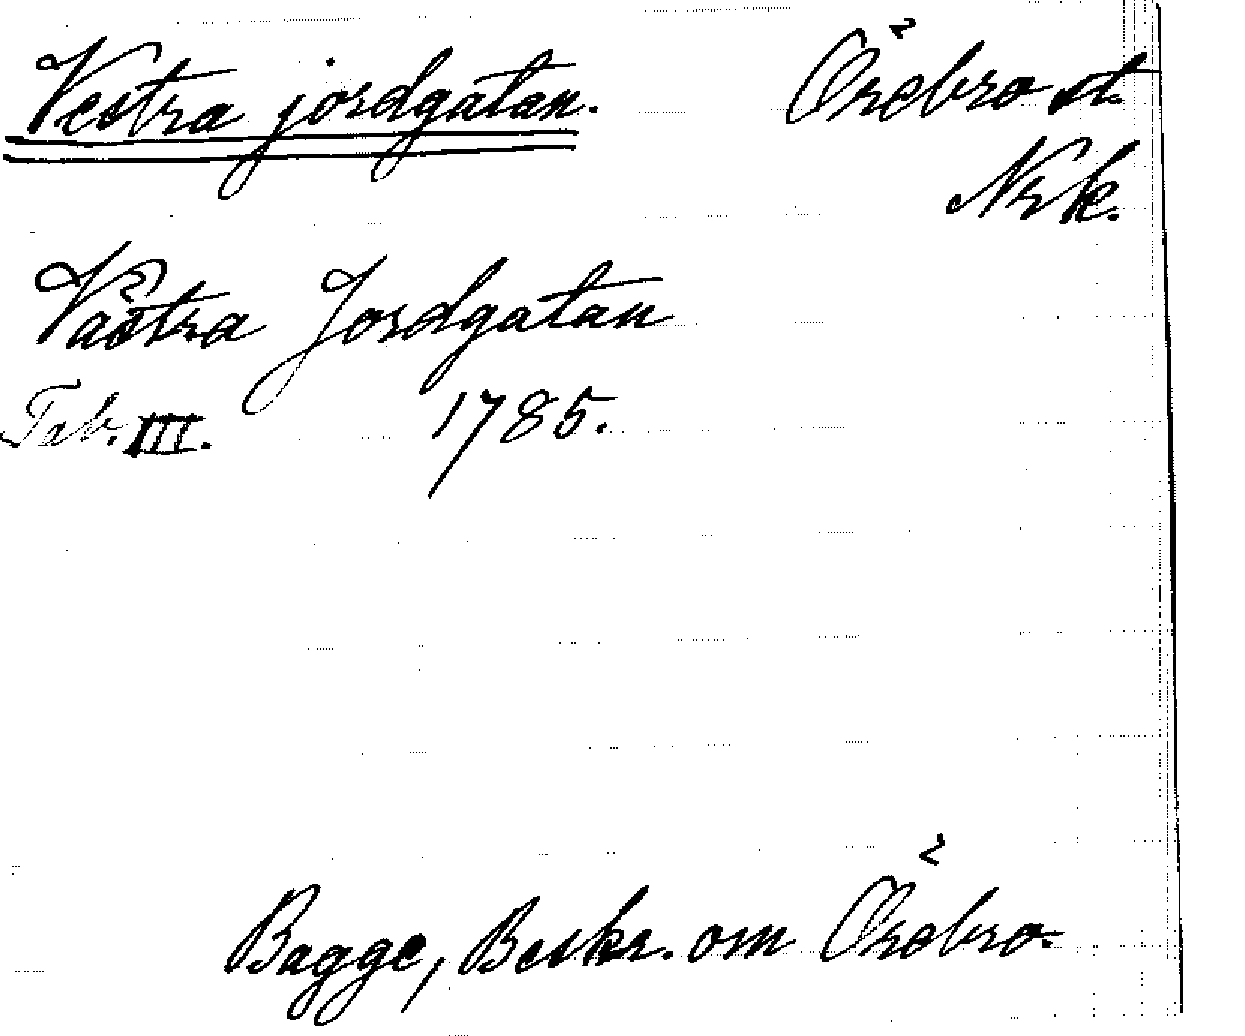 Vestra jordgatan. Örebro st.
Nrk.
Västra Jordgatan
Tab. III. 1785.
Bagge, Beskr. om Örebro.